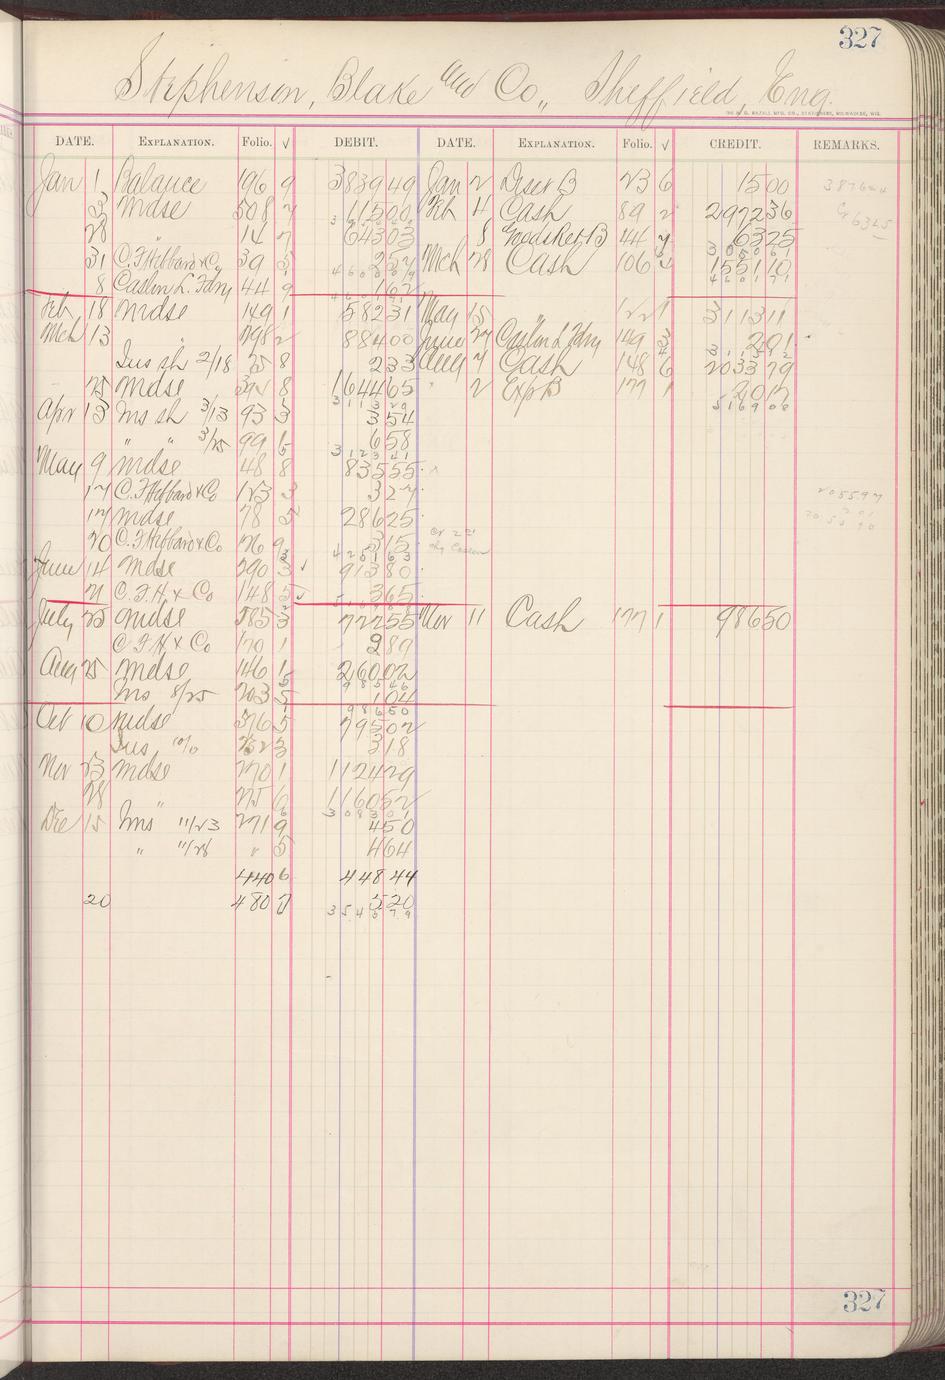 327
Stephenson, Blake and Co., Sheffield, Eng.
DATE. EXPLANATION. Folio. √ DEBIT. DATE. EXPLANATION. Folio. √ CREDIT. REMARKS.
Jan 1 Balance 196 9 3839 49 Jan 2 Discr B 23 6 15 00
3 Mdse 508 7 115 00 Feb 4 Cash 89 2 2972 36
28 " 14 7 643 03 44 63 25
31 C. F. Hibbard & Co 39 5 2 57 Mch 28 Cash 106 1551 10
8 Caslon L. Fdry 44 9 1 62
Feb 18 Mdse 149 1 582 31 May 15 3113 11
Mch 13 798 884 00 June 27 Caslon L Fdry 149 3 2 01
Ins sh 2/18 35 8 2 33 Aug 7 Cash 148 6 2033 79
25 Mdse 8 1644 65 2 Exp B 177 1 20 17
Apr 13 Ins sh 3/13 93 3 3 54
" " 3/25 99 6 6 58
May 9 Mdse 48 8 835 55
17 C. F. Hibbard & Co 123 3 3 27
17 Mdse 78 5 286 25
20 C. F. Hibbard & Co 76 9 3 15
June 14 Mdse 290 3 913 80
21 C. F. H. & Co 148 5 3 65
July 25 Mdse 585 3 722 55 Nov 11 Cash 177 1 986 50
C. F. H. & Co 170 1 2 89
Aug 25 Mdse 146 1 260 02
Ins 8/25 203 5 1 04
986 50
Oct 10 Mdse 376 5 795 02
Ins 10/10 3 3 18
Nov 23 Mdse 270 1 1124 29
28 " 275 6 1160 52
3083 01
Dec 15 Ins 11/23 271 9 4 50
" 11/28 " 5 4 64
440 6 448 44
20 480 7 5 20
3545 79
327